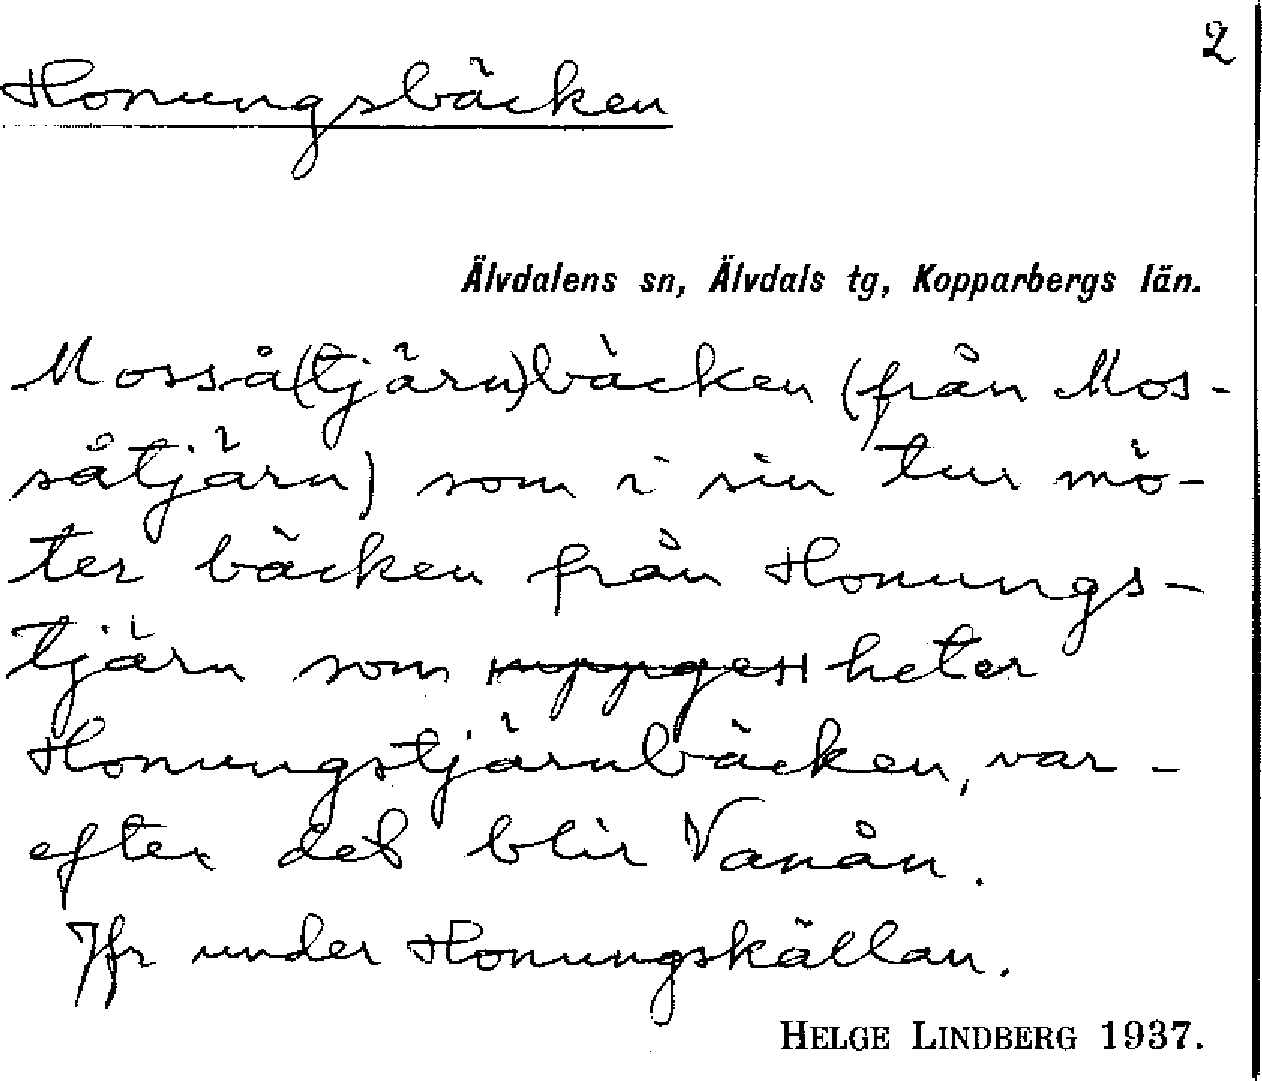 2
Honungsbäcken
Älvdalens sn, Älvdals tg, Kopparbergs län.
Mosså(tjärn)bäcken (från Mos-
såtjärn) som i sin tur mö-
ter bäcken från Honungs-
tjärn som heter
Honungstjärnbäcken, var-
efter det blir Vanån.
Jfr under Honungskällan.
HELGE LINDBERG 1937.